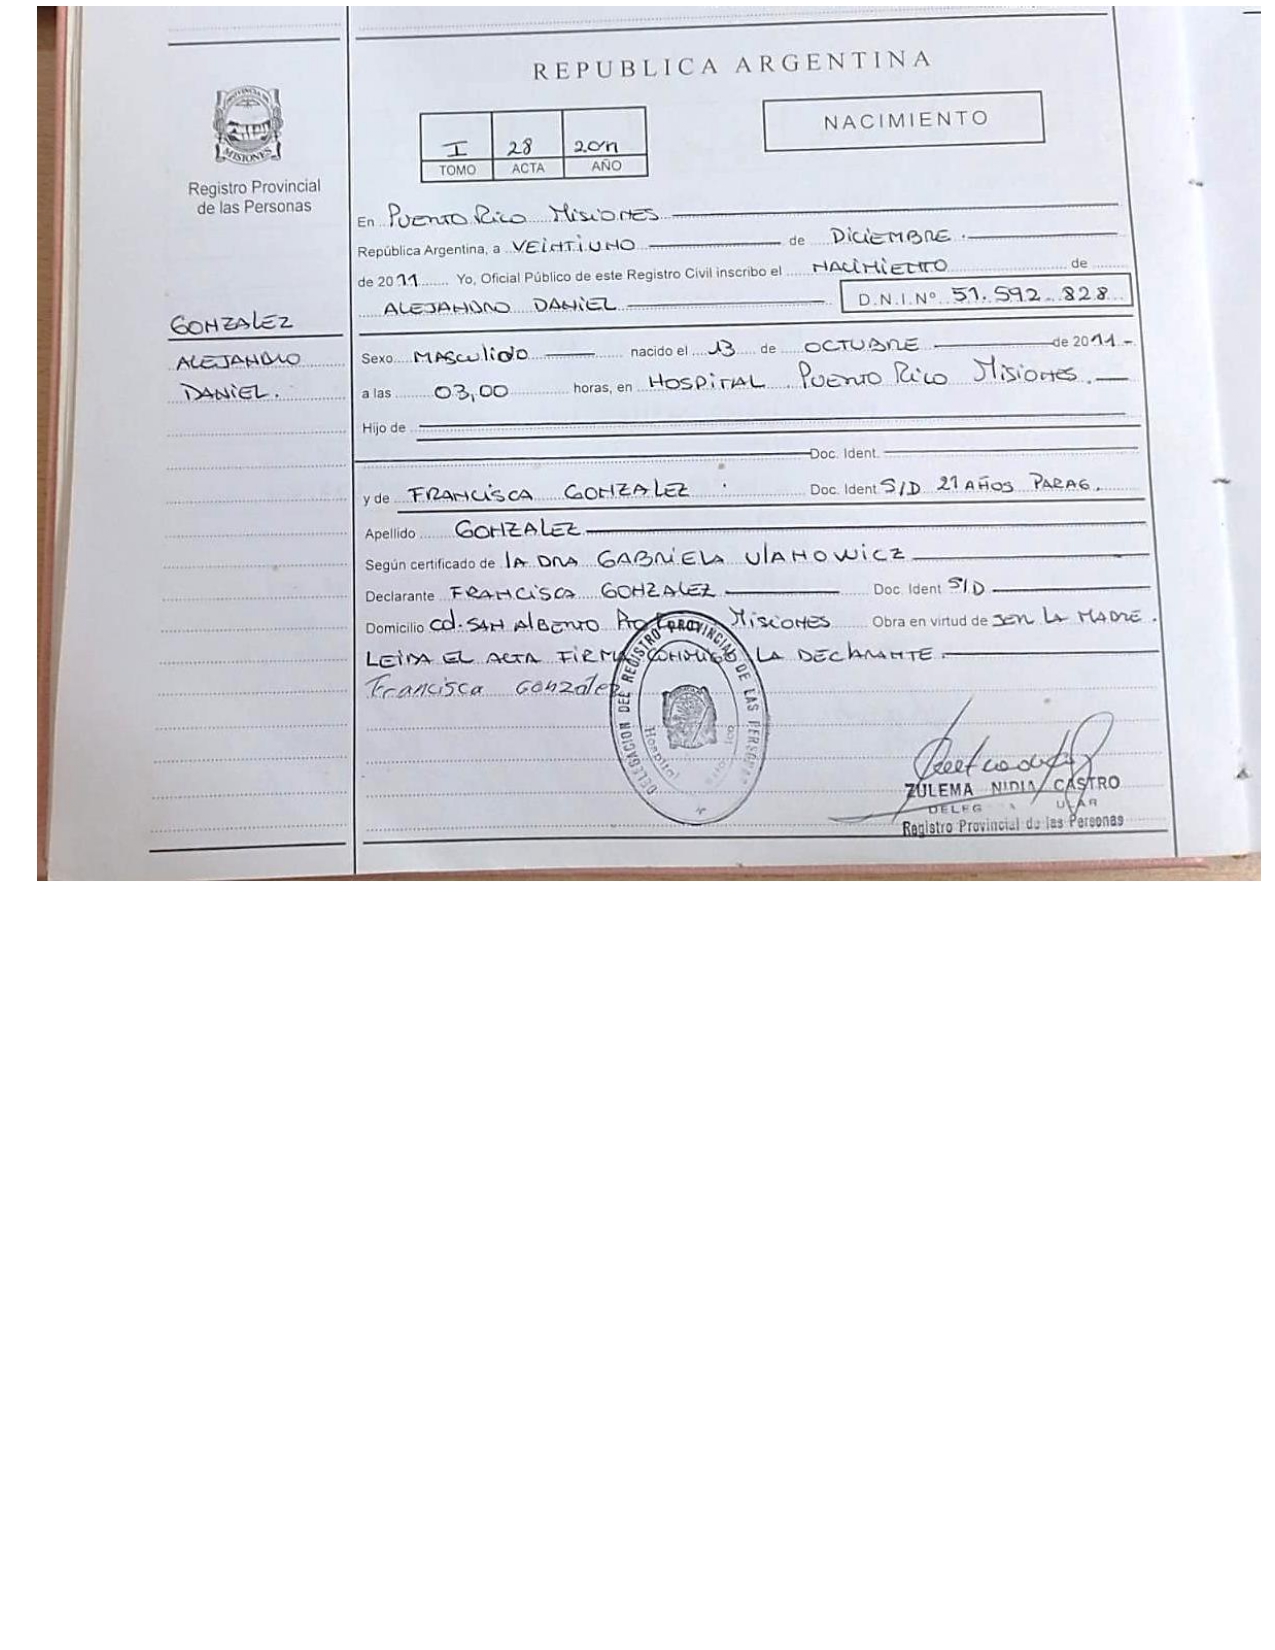 REPUBLICA ARGENTINA
PROVINCIA DE
MISIONES
Registro Provincial
de las Personas
NACIMIENTO
I 28 2011
TOMO ACTA AÑO
En PUERTO RICO MISIONES
República Argentina, a VEINTIUNO de DICIEMBRE.
de 2011 Yo, Oficial Público de este Registro Civil inscribo el NACIMIENTO de
ALEJANDRO DANIEL D.N.I.Nº 51.592.828
GONZALEZ
ALEJANDRO
DANIEL.
Sexo MASCULINO nacido el 13 de OCTUBRE de 2011-
a las 03,00 horas, en HOSPITAL PUERTO RICO MISIONES.
Hijo de
Doc. Ident.
y de FRANCISCA GONZALEZ. Doc. Ident S/D 21 AÑOS PARAG.
Apellido GONZALEZ
Según certificado de LA DRA GABRIELA ULANOWICZ
Declarante FRANCISCA GONZALEZ Doc. Ident S/D
Domicilio Cd. SAN ALBERTO Pto MISIONES Obra en virtud de SER LA MADRE.
LEIDA EL ACTA FIRMA CONMIGO LA DECLARANTE.
Francisca Gonzalez
DELEGACION DEL REGISTRO PROVINCIAL DE LAS PERSONAS
Hospital
ZULEMA NIDIA CASTRO
Registro Provincial de las Personas